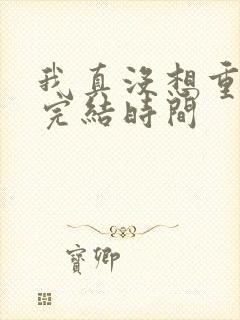 我真没想重
完結時間
寶卿